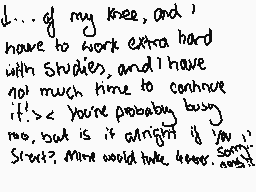 I... of my knee, and I
have to work extra hard
with studies, and I have
not much time to continue
it! >< You're probably busy
too, but is it alright if you
start? Mine would take 4ever. Sorry!